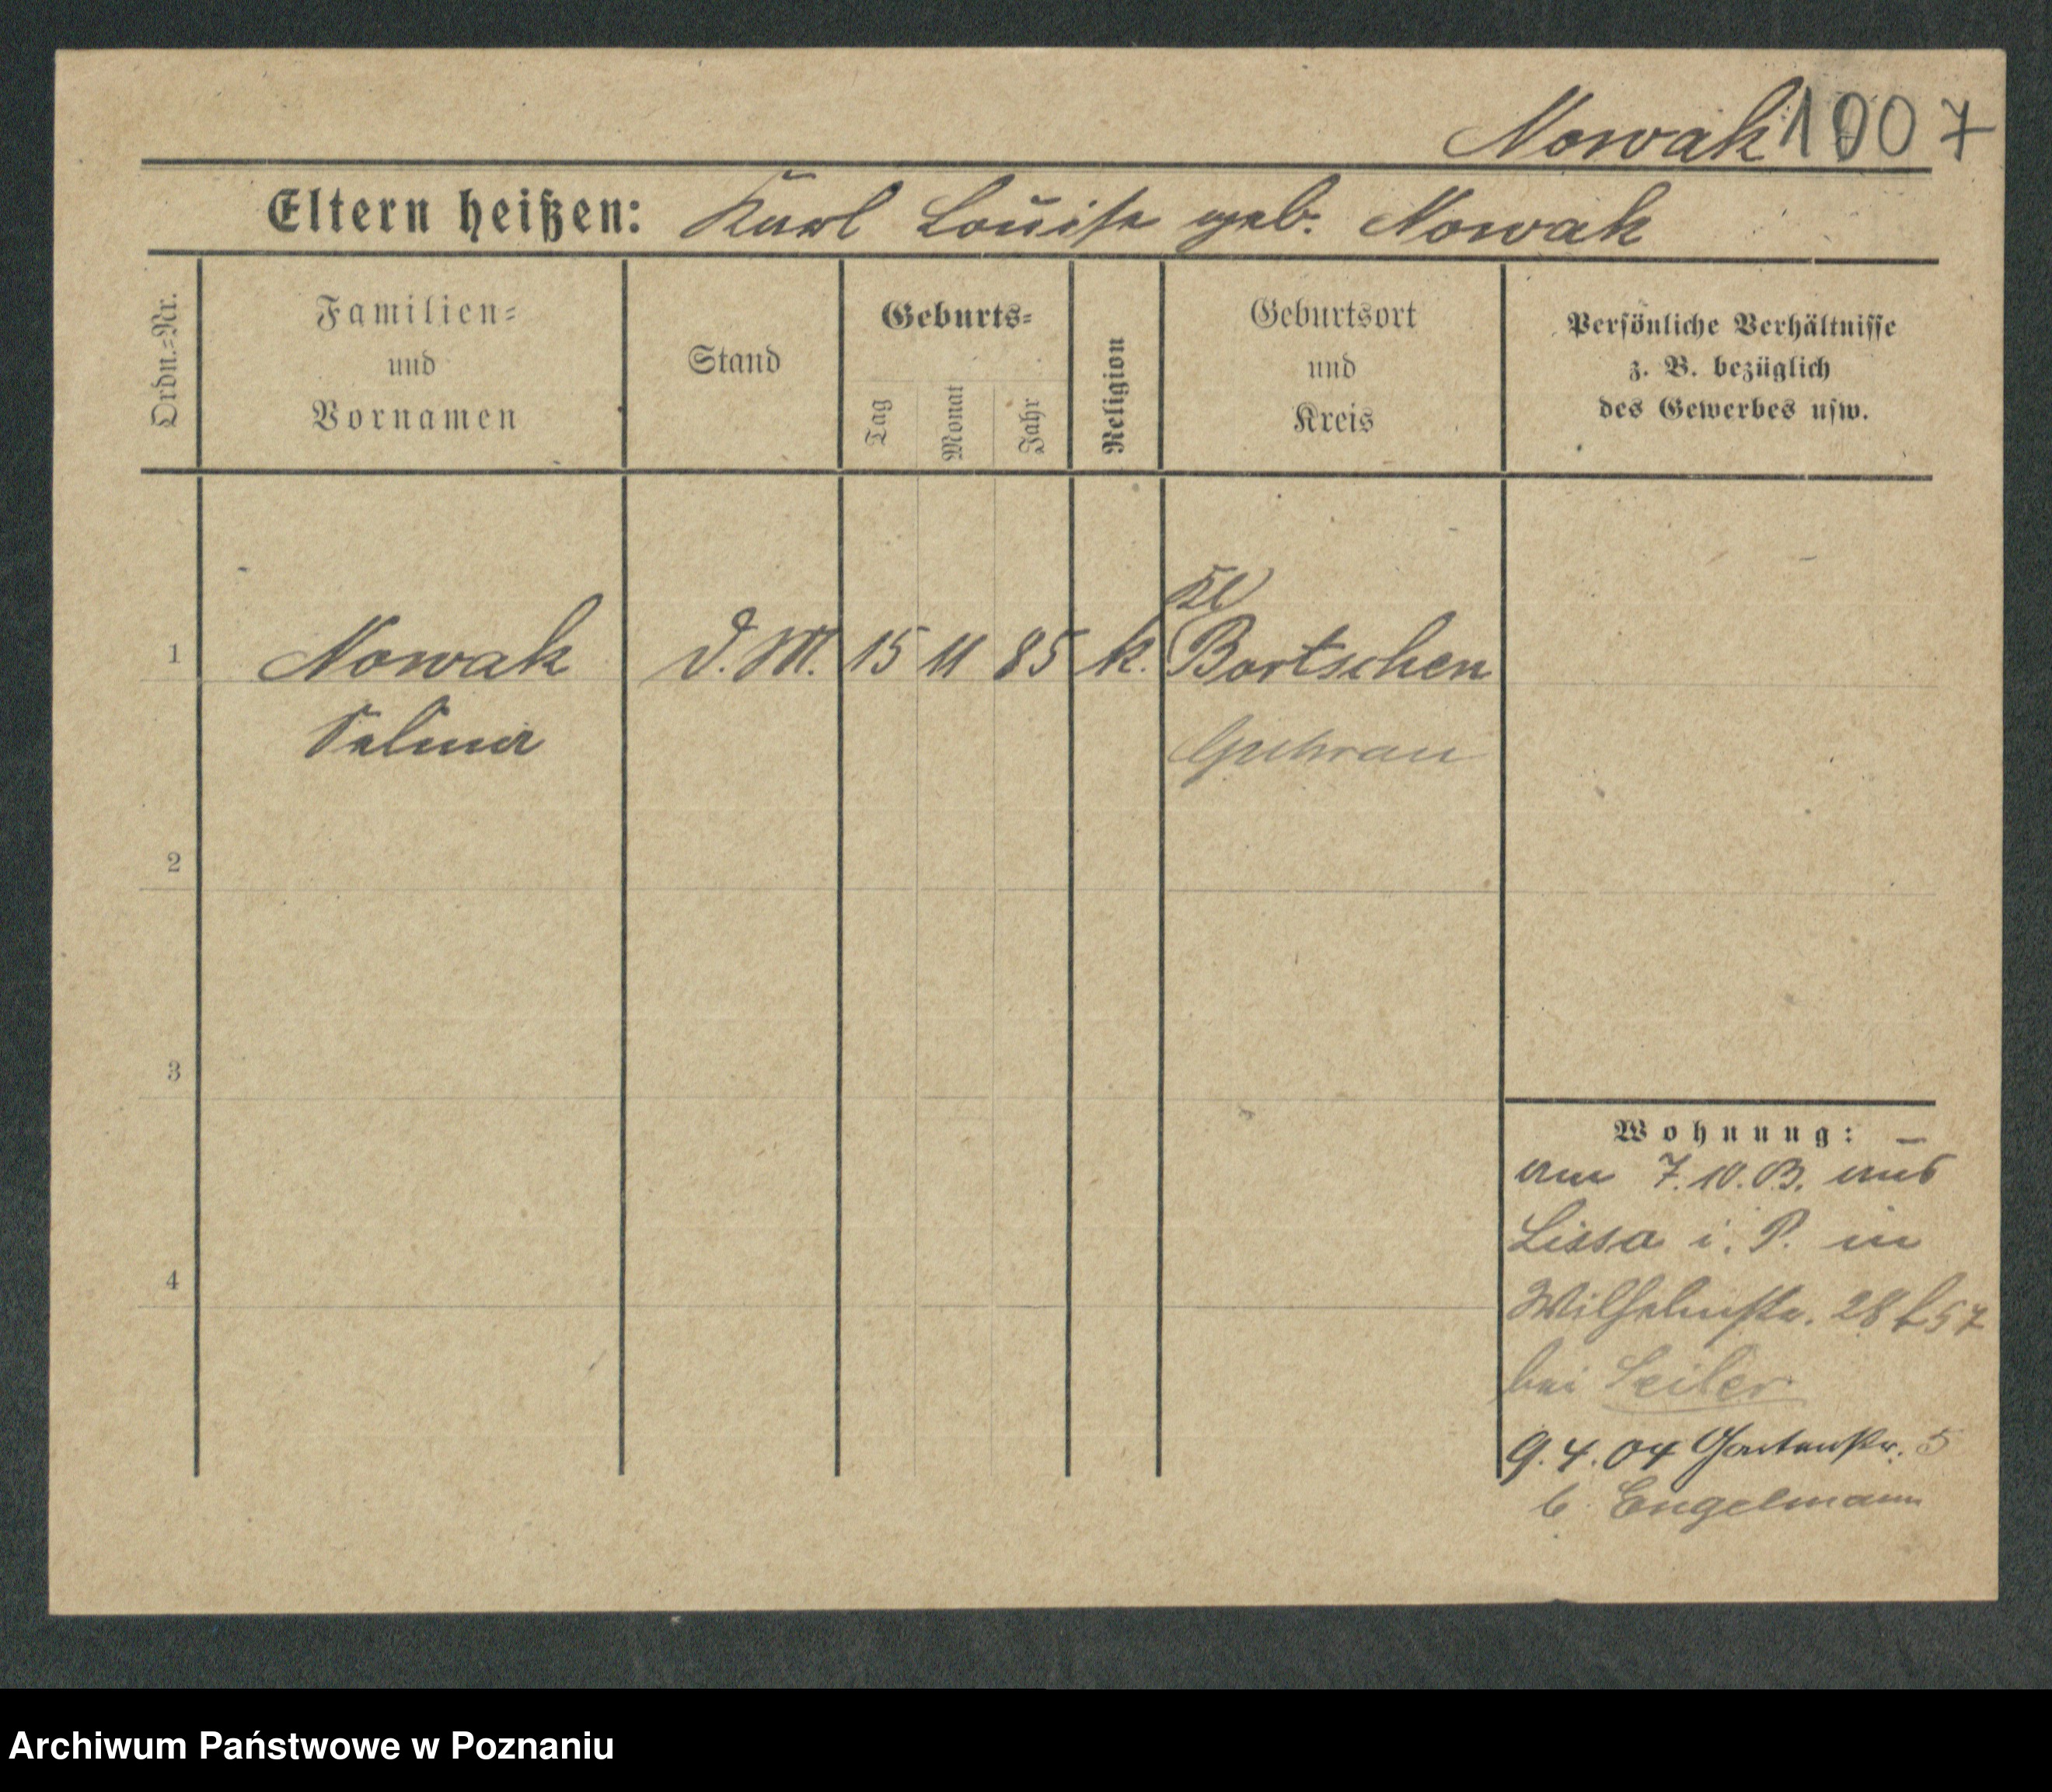 Nowak 1007
Eltern heißen: Karl Louise geb. Nowak
Ordn.=Nr.
Familien=
und
Vornamen
Stand
Geburts=
Tag
Monat
Jahr
Religion
Geburtsort
und
Kreis
Persönliche Verhältnisse
z. B. bezüglich
des Gewerbes usw.
Kl
1 Nowak D.M. 15 11 85 k. Bortschen
Selma Guhrau
2
3
4
Wohnung: –
am 7.10.03. aus
Lissa i. P. in
Wilhelmstr. 28
bei Seiler
9.4.04 Gartenstr. 5
b. Engelmann
Archiwum Państwowe w Poznaniu